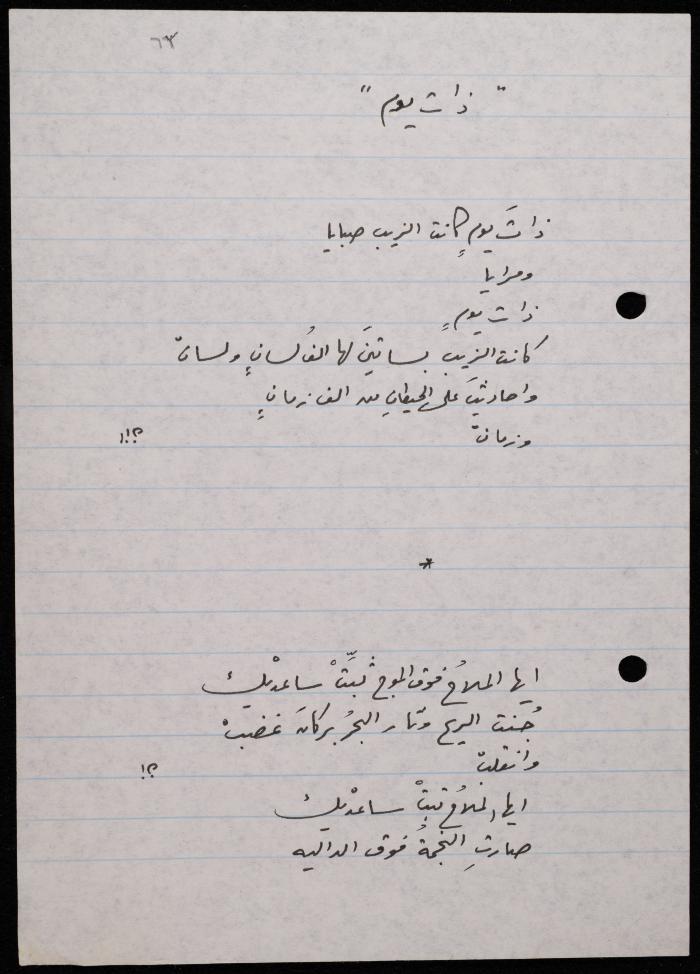 ٦٣
" ذات يوم "
ذاتَ يومٍ كانت الزيب صبايا
ومرايا
ذات يومٍ
كانت الزيبُ بساتينَ لها الفُ لسانٍ ولسانْ
واحاديثَ على الحيطانِ من الف زمانٍ
وزمانْ !!؟
*
ايها الملاحُ فوق الموج ثبِّتْ ساعديْك
جُنت الريح وثار البحرُ بركانَ غضبْ
وانقلبْ !؟
ايها الملاحُ ثبتْ ساعديْك
صارتِ النجمةُ فوق الداليه